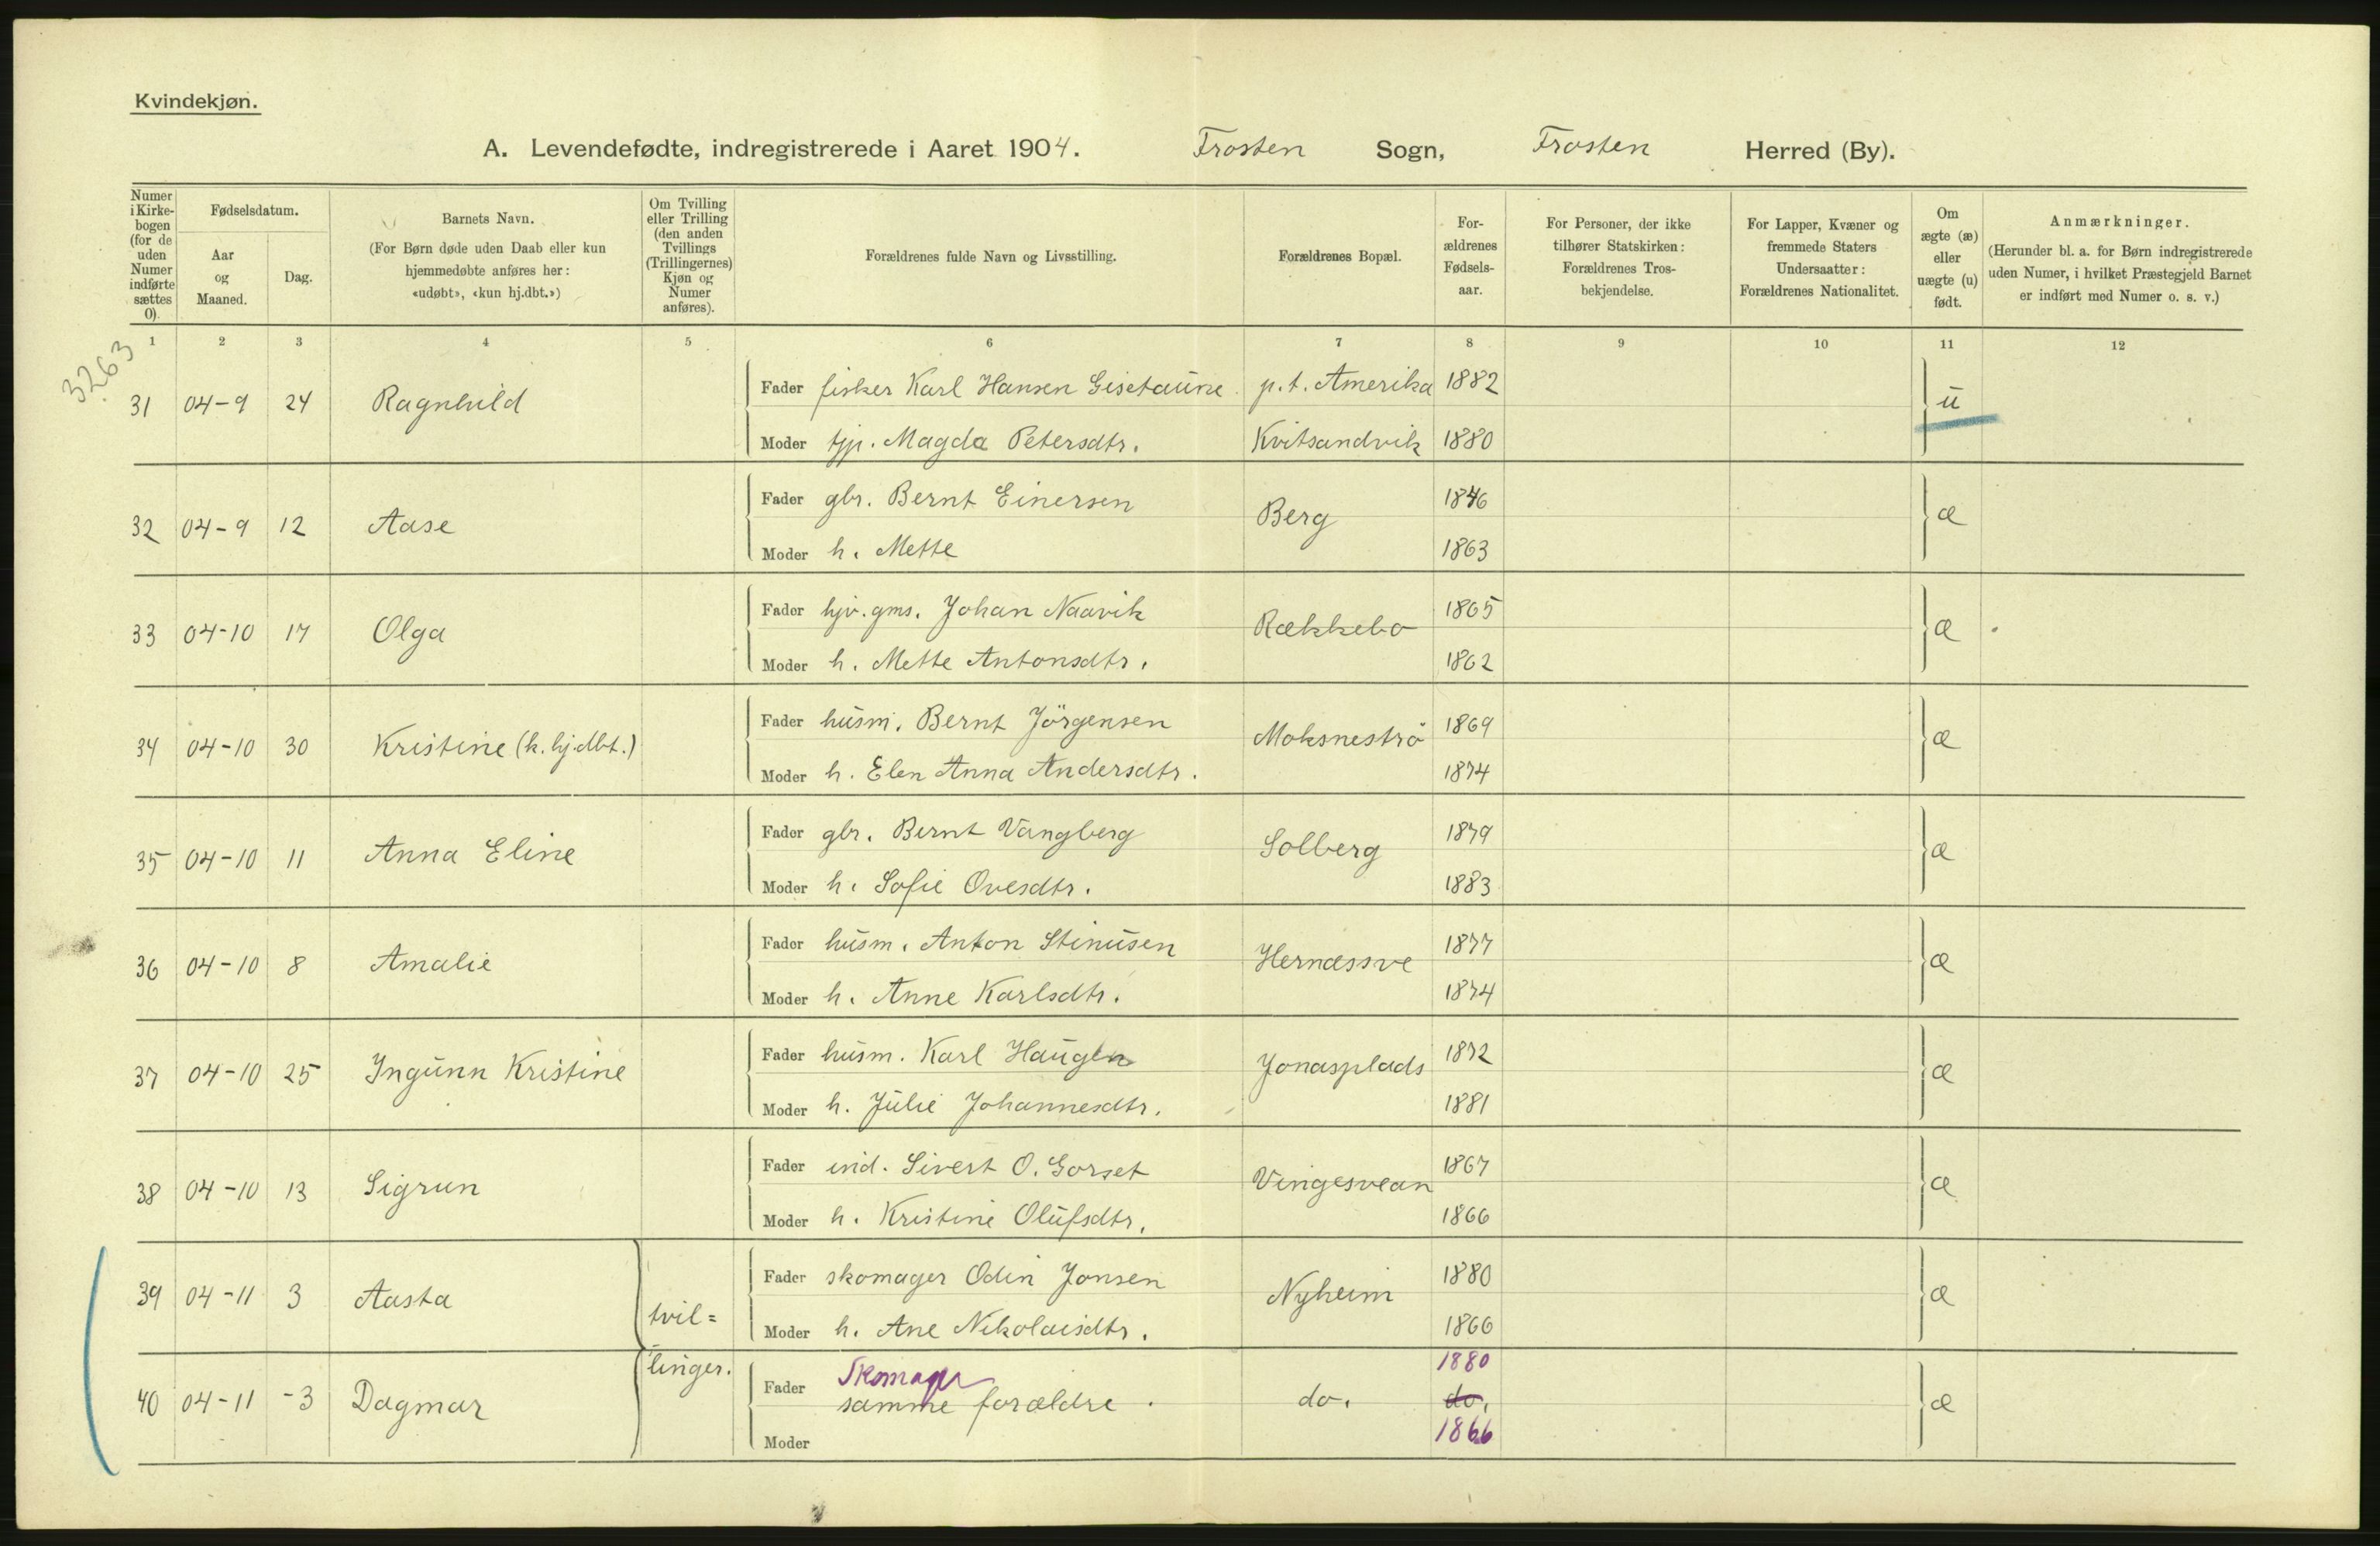 Kvindekjøn.
A. Levendefødte, indregistrerede i Aaret 1904. Frosten Sogn, Frosten Herred (By).
Numer i Kirkebogen (for de uden Numer indførte sættes 0).
Fødselsdatum.
Aar og Maaned.
Dag.
Barnets Navn.
(For Børn døde uden Daab eller kun hjemmedøbte anføres her: «udøbt», «kun hj.dbt.»)
Om Tvilling eller Trilling (den anden Tvillings (Trillingernes) Kjøn og Numer anføres).
Forældrenes fulde Navn og Livsstilling.
Forældrenes Bopæl.
Forældrenes Fødselsaar.
For Personer, der ikke tilhører Statskirken: Forældrenes Trosbekjendelse.
For Lapper, Kvæner og fremmede Staters Undersaatter: Forældrenes Nationalitet.
Om ægte (æ) eller uægte (u) født.
Anmærkninger.
(Herunder bl. a. for Børn indregistrerede uden Numer, i hvilket Præstegjeld Barnet er indført med Numer o. s. v.)
1 2 3 4 5 6 7 8 9 10 11 12
3263
31 04-9 24 Ragnhild Fader fisker Karl Hansen Gisetaune p.t. Amerika 1882 u
Moder tjp. Magda Petersdtr. Kvitsandvik 1880
32 04-9 12 Aase Fader gbr. Bernt Einersen Berg 1846 æ
Moder h. Mette 1863
33 04-10 17 Olga Fader hjv. gms. Johan Naavik Rækkebo 1865 æ
Moder h. Mette Antonsdtr. 1862
34 04-10 30 Kristine (k. hj.dbt.) Fader husm. Bernt Jörgensen Moksneströ 1869 æ
Moder h. Elen Anna Andersdtr. 1874
35 04-10 11 Anna Eline Fader gbr. Bernt Vangberg Solberg 1879 æ
Moder h. Sofie Ovesdtr. 1883
36 04-10 8 Amalie Fader husm. Anton Stinusen Hernæssve 1877 æ
Moder h. Anne Karlsdtr. 1874
37 04-10 25 Ingunn Kristine Fader husm. Karl Haugen Jonasplads 1872 æ
Moder h. Julie Johannesdtr. 1881
38 04-10 13 Sigrun Fader ind. Sivert O. Gorset Vingesvean 1867 æ
Moder h. Kristine Olufsdtr. 1866
39 04-11 3 Aasta tvil= Fader skomager Odin Jonsen Nyheim 1880 æ
Moder h. Ane Nikolaisdtr. 1866
40 04-11 -3 Dagmar linger. Fader Skomager samme forældre. do. 1880 do. æ
Moder 1866